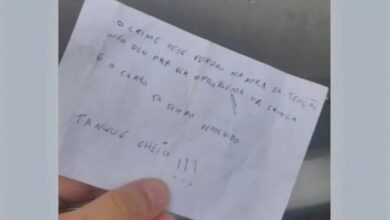 O CRIME PEDE PERDÃO NA HORA DA
NÃO DEU PRA VER O PROBLEMA DA CRIANÇA
E O CARRO
TA SENDO DEVOLVIDO
TANQUE CHEIO !!!